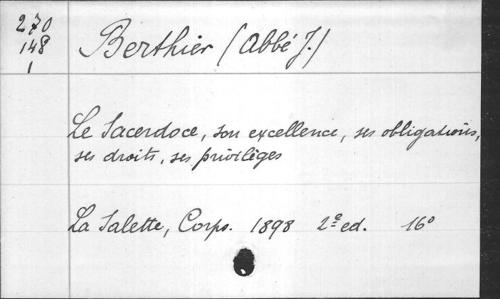 270
148
1
Berthier (Abbé J.)
Le Sacerdoce, son excellence, ses obligations,
ses droits, ses privilèges
La Salette, Corps. 1898 2e ed. 16°